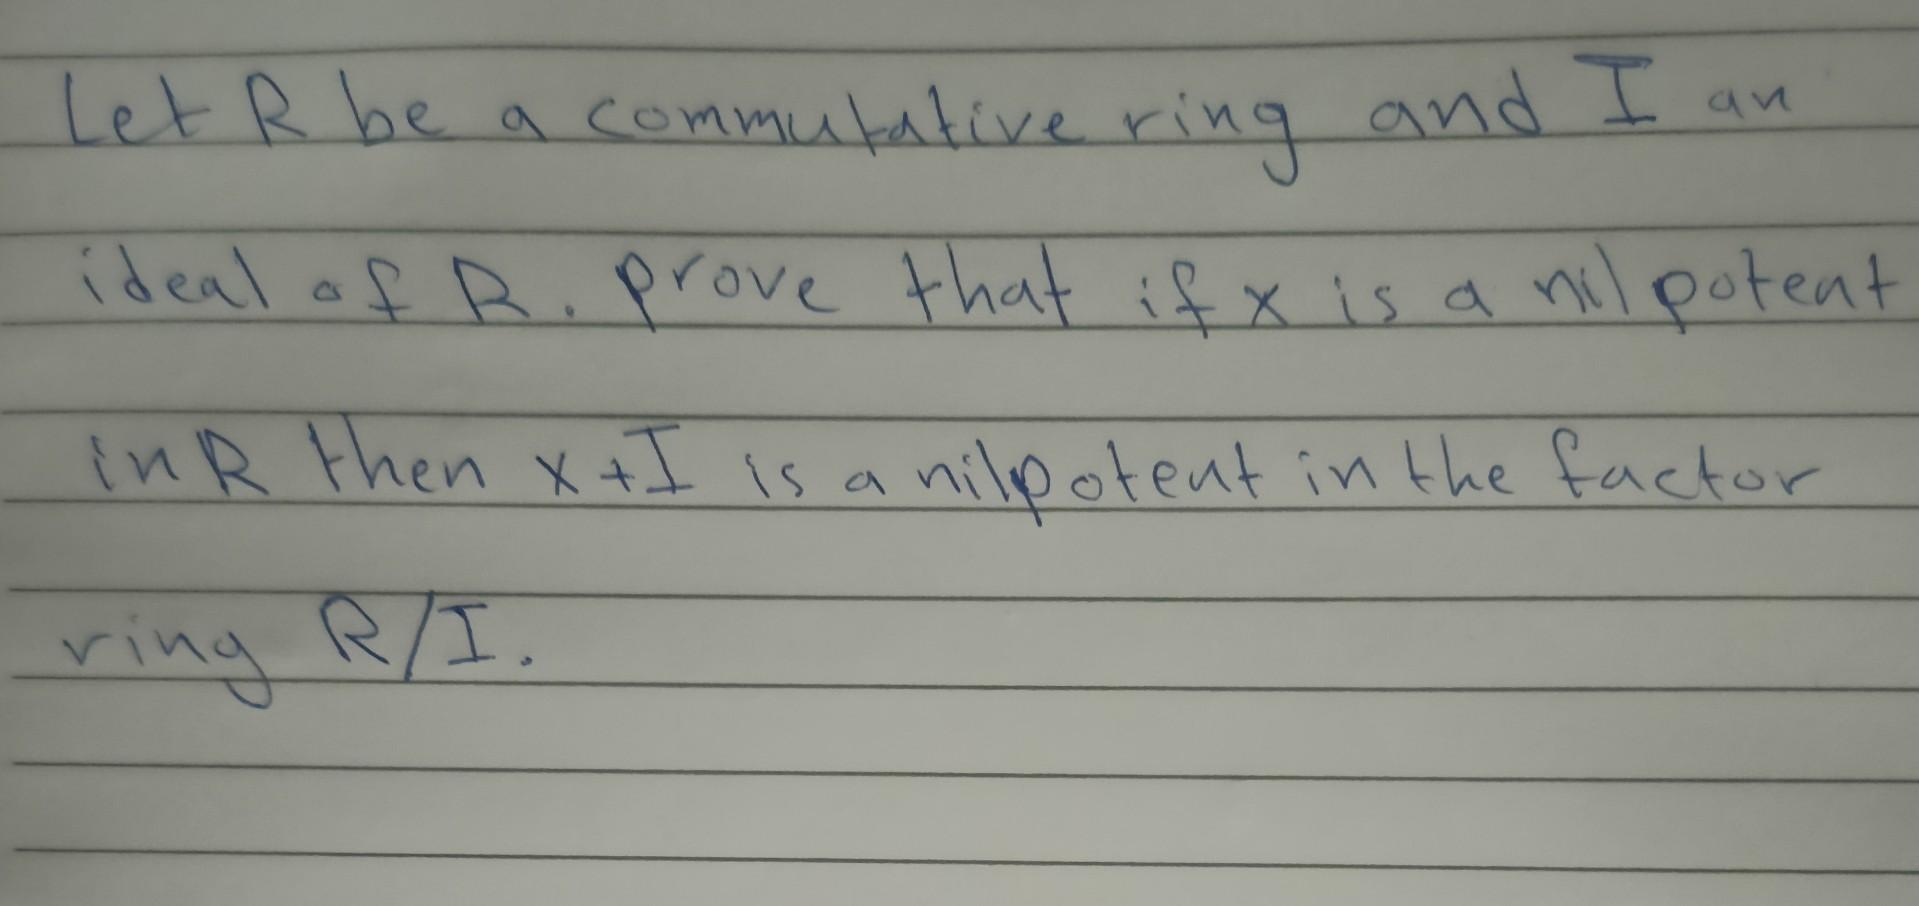 Let R be a commutative ring and I an
ideal of R. prove that if x is a nilpotent
in R then x+I is a nilpotent in the factor
ring R/I.